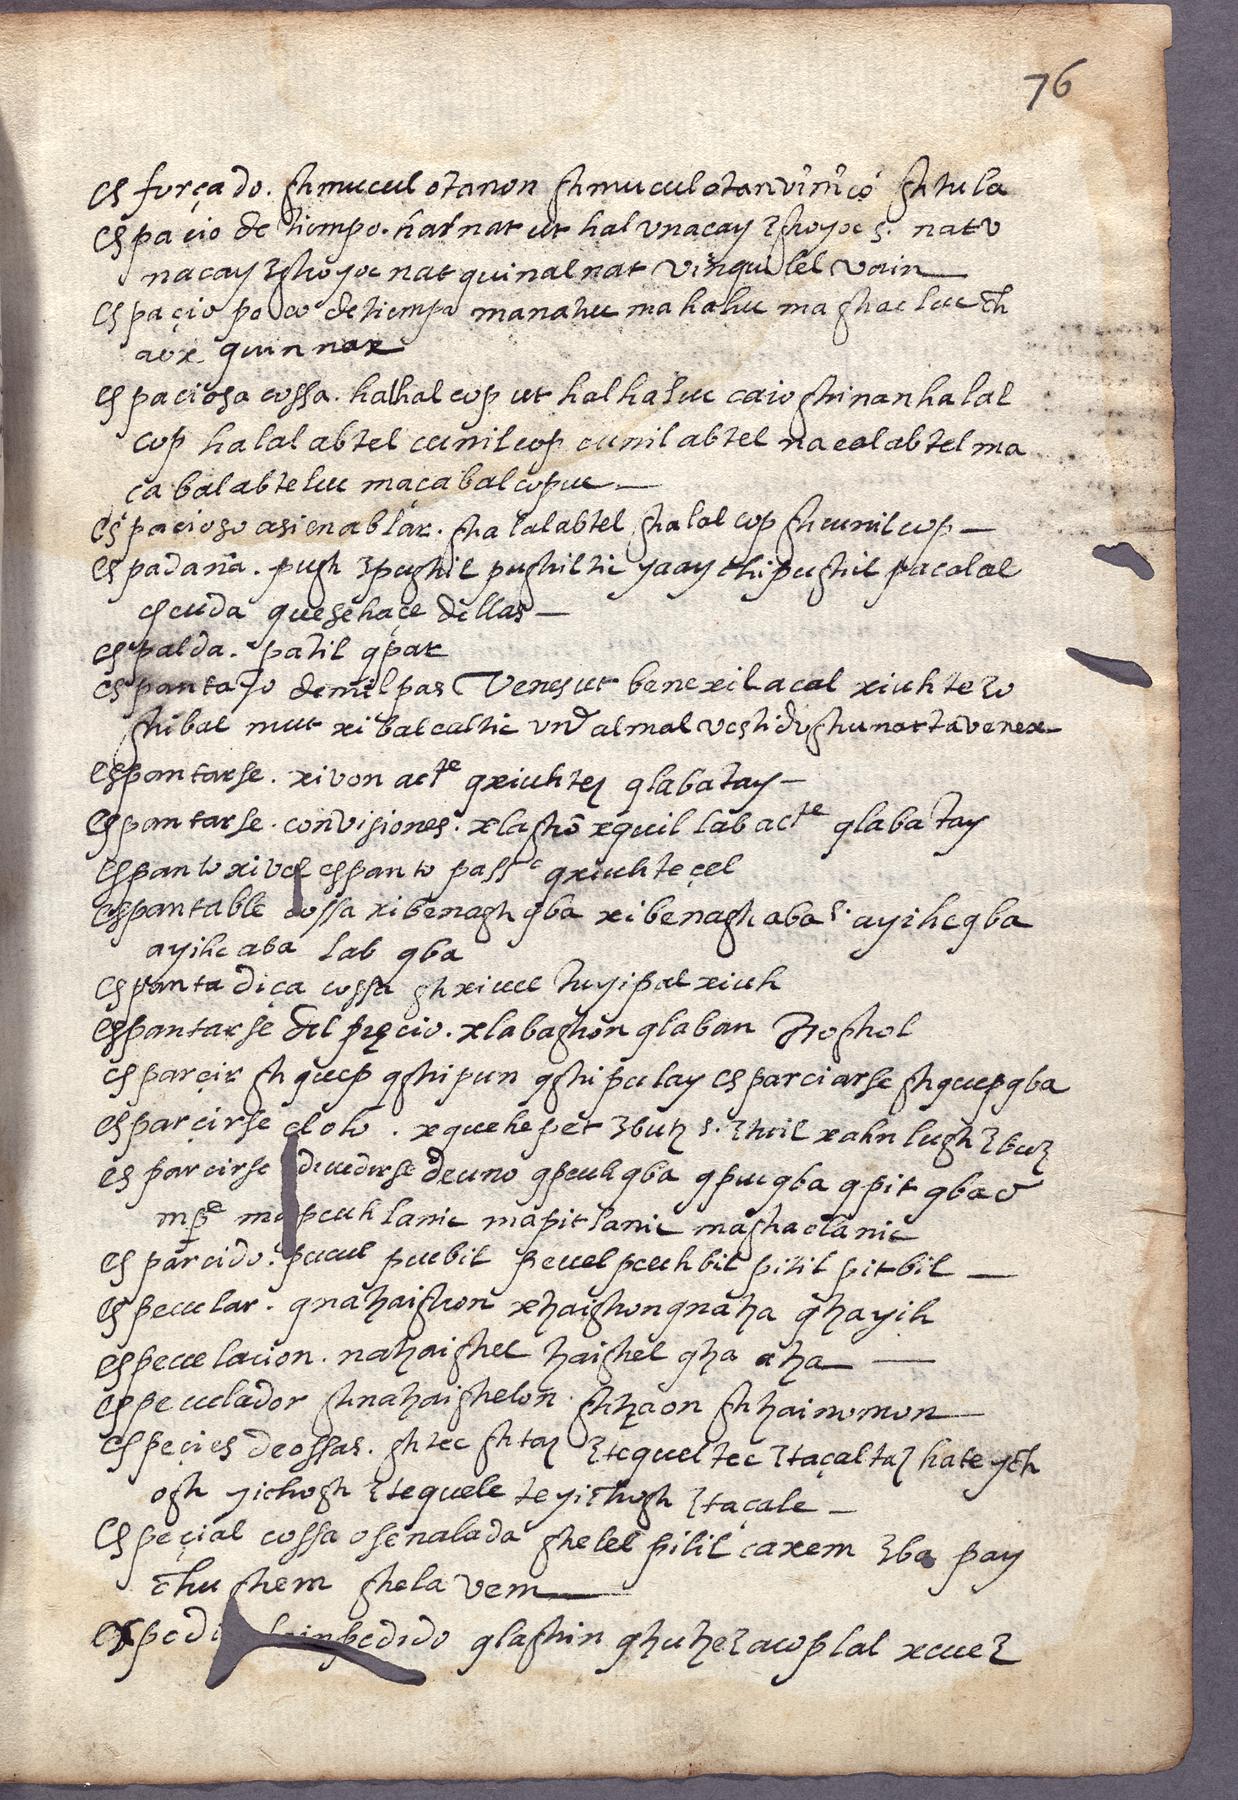 76
esforçado. ghmucul otanon ghmucul otan vinicó ghtula
espacio de tiempo. hal nat ut hal vnacay ʒghoyoc s. nat v
nacay ʒghoyoc nat quinal nat vinquilel vain
espaçio poco de tiempo manahu mahaluc maghaeluc ch
aox quin nax
espaciosa cossa. halhal cop ut halhaluc caioghinan halal
cop halal abtel cunil cop cunil abtel nacal abtel ma
çabal abteluc maçabal copuc
espacioso asi en ablar. ghalal abtel ghalal cop ghcunil cop
espadaña. pugh ʒpughil pughiltic yaaychi pughil pacalal
escuda que se haçe dellas
espalda. patil qpat
espantajo de milpas Venes ut benexil acal xiuhteʒo
ghibal mut xibalcaltic vnd almal vestido ghunorta venex
espantarse. xivon acte qxiuhtez qlabatay
espantarse. con visiones. xlaghõ xquil lab acte qlabatay
espanto xivel espanto passe qxiuhteçel
espantable cossa xibenagh qba xibenagh aba s. ayihc qba
ayihc aba lab qba
espantadiça cossa ghxiuel tuyipal xiuh
espantarse del preçio. xlabaghon qlaban ztoghol
esparçir ghquep qghipun qghipulay esparciarse ghquepqba
esparçirse el olor. xquehepet ʒbutz s. ʒtuil xahn lugh ʒbutz
esparcirse diuedirse de uno qpcuh qba qpuc qba qpit qba v
mpe mapcuhlanic mapitlanic maghaolanic
esparcido. pucul pucbil peuel pcuhbil pitil pitbil
especular. qnaꜩaighon xꜩaighon qnaꜩa qꜩayih
especulacion. naꜩaighel ꜩaighel qꜩa aꜩa
especulador ghnaꜩaighelon ghꜩaon ghꜩainomon
espeçies de ossas. ghtec ghtaz ʒtequel tec ʒtaçal taz hateych
ogh yichogh ʒtequele te yichogh ʒtaçale
espeçial cossa o señalada ghelel pilil caxem ʒba pay
chu ghem ghela vem
impedido qlaghin qꜩuꜩeʒ acop lal xcueʒ